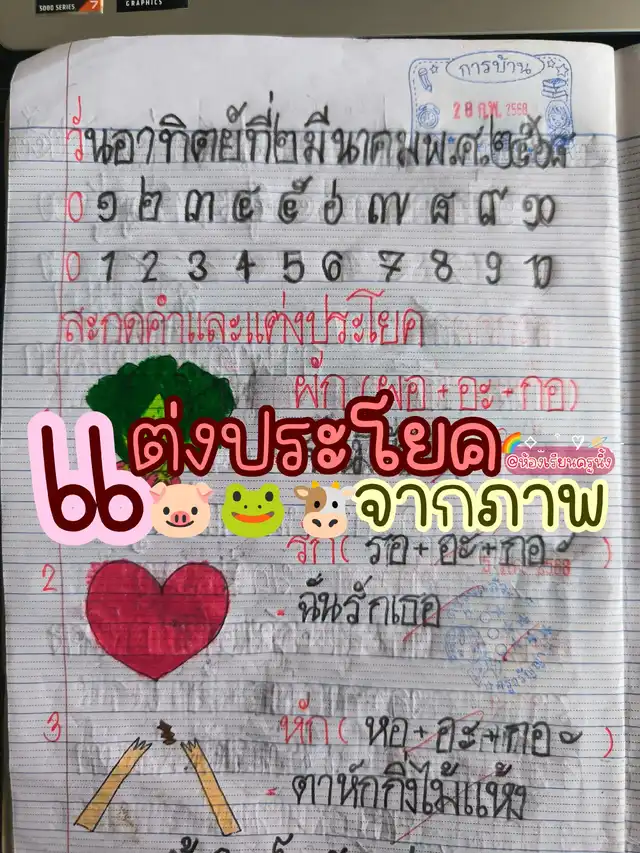 5000 SERIES 7
GRAPHICS
การบ้าน
28 ก.พ. 2568
วันอาทิตย์ที่๒มีนาคมพ.ศ.๒๕๖๘
๐ ๑ ๒ ๓ ๔ ๕ ๖ ๗ ๘ ๙ ๑๐
0 1 2 3 4 5 6 7 8 9 10
สะกดคำและแต่งประโยค
ผัก (ผอ + อะ + กอ)
แต่งประโยค
@ห้องเรียนครูนั้ง
จากภาพ
2 รัก ( รอ + อะ + กอ )
2568
- ฉันรักเธอ
3 หัก ( หอ + อะ + กอ )
- ตาหักกิ่งไม้แห้ง